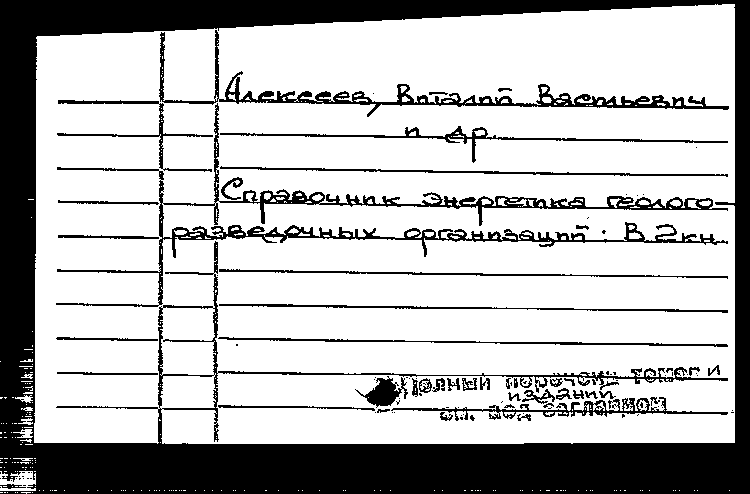 Алексеев, Виталий Васильевич
и др.
Справочник энергетика геолого-
разведочных организаций : В 2 кн.
Полный перечень томов и
изданий
см. под заглавием